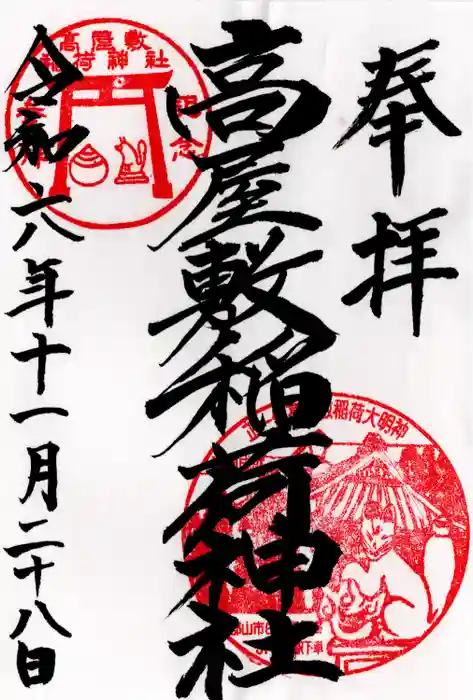 奉拝
高屋敷稲荷神社
令和六年十一月二十八日
高屋敷
稲荷神社
念
稲荷大明神
山市
下車